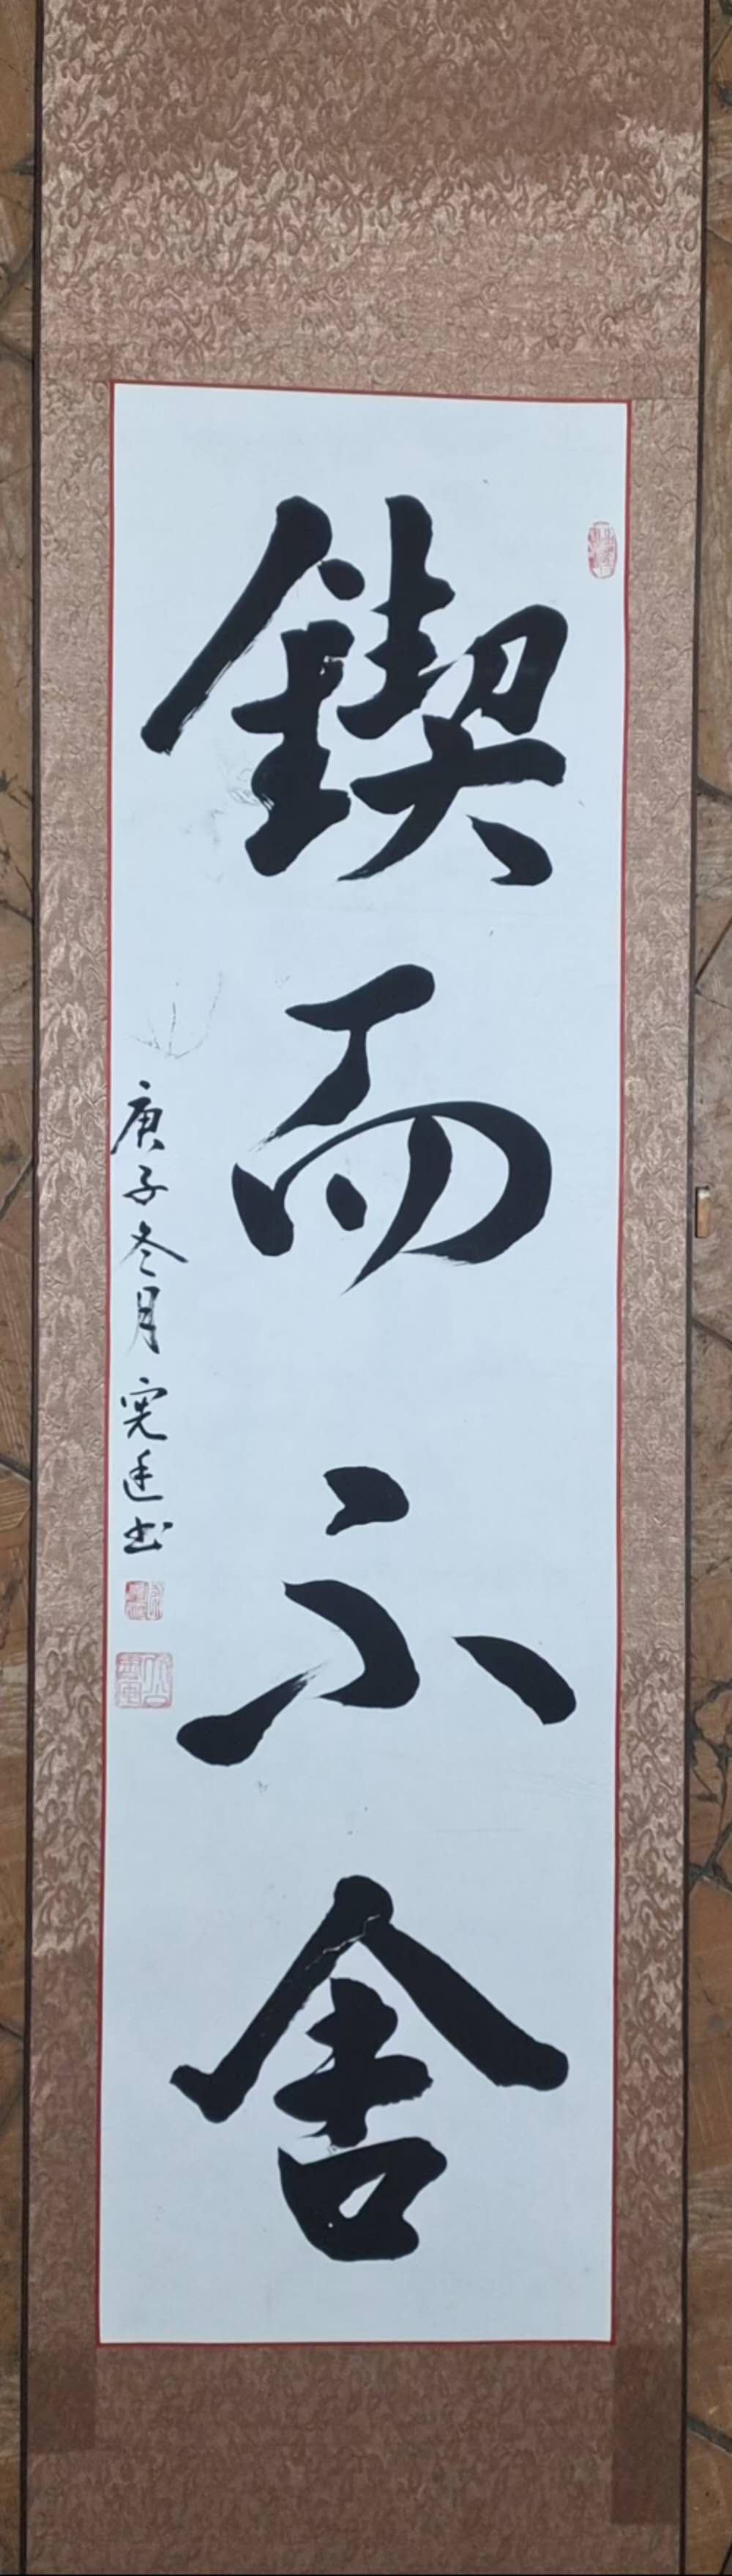 锲而不舍
庚子冬月宪廷书